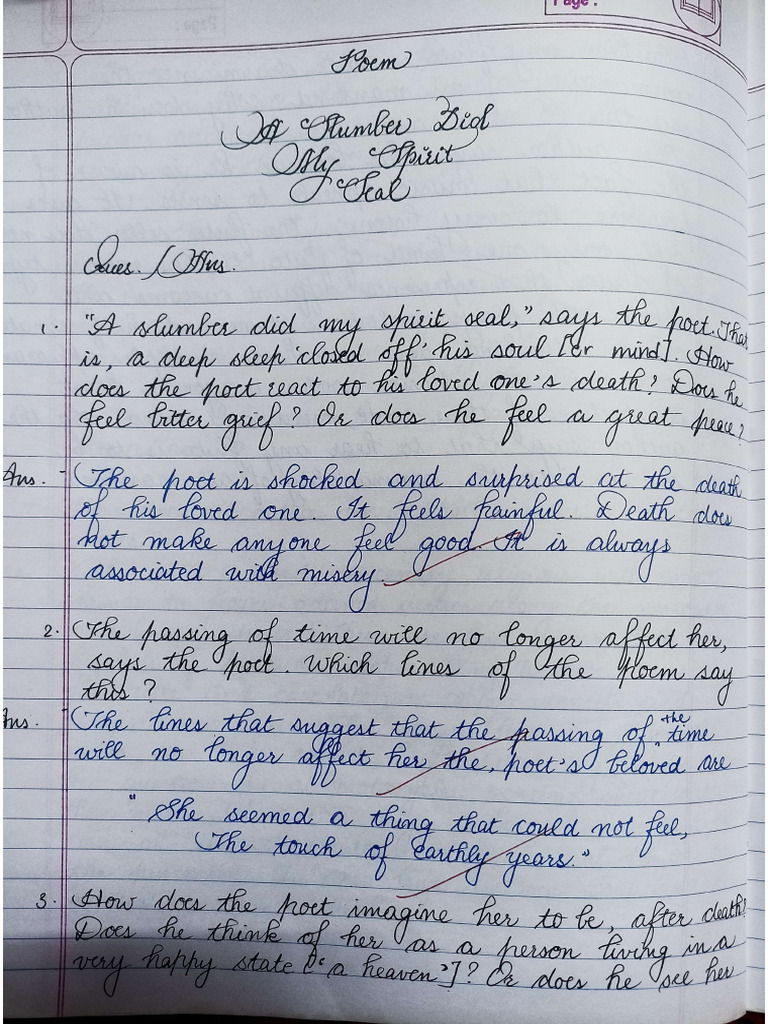 Page :
Poem
A Slumber Did
My Spirit
Seal
Ques. / Ans.
1. "A slumber did my spirit seal," says the poet. That
is, a deep sleep 'closed off' his soul [or mind]. How
does the poet react to his loved one's death? Does he
feel bitter grief? Or does he feel a great peace?
Ans. - The poet is shocked and surprised at the death
of his loved one. It feels painful. Death does
not make anyone feel good. It is always
associated with misery.
2. The passing of time will no longer affect her,
says the poet. Which lines of the poem say
this ?
Ans. - The lines that suggest that the passing of the time
will no longer affect her the, poet's beloved are
"She seemed a thing that could not feel,
The touch of earthly years."
3. How does the poet imagine her to be, after death?
Does he think of her as a person living in a
very happy state ['a heaven']? Or does he see her